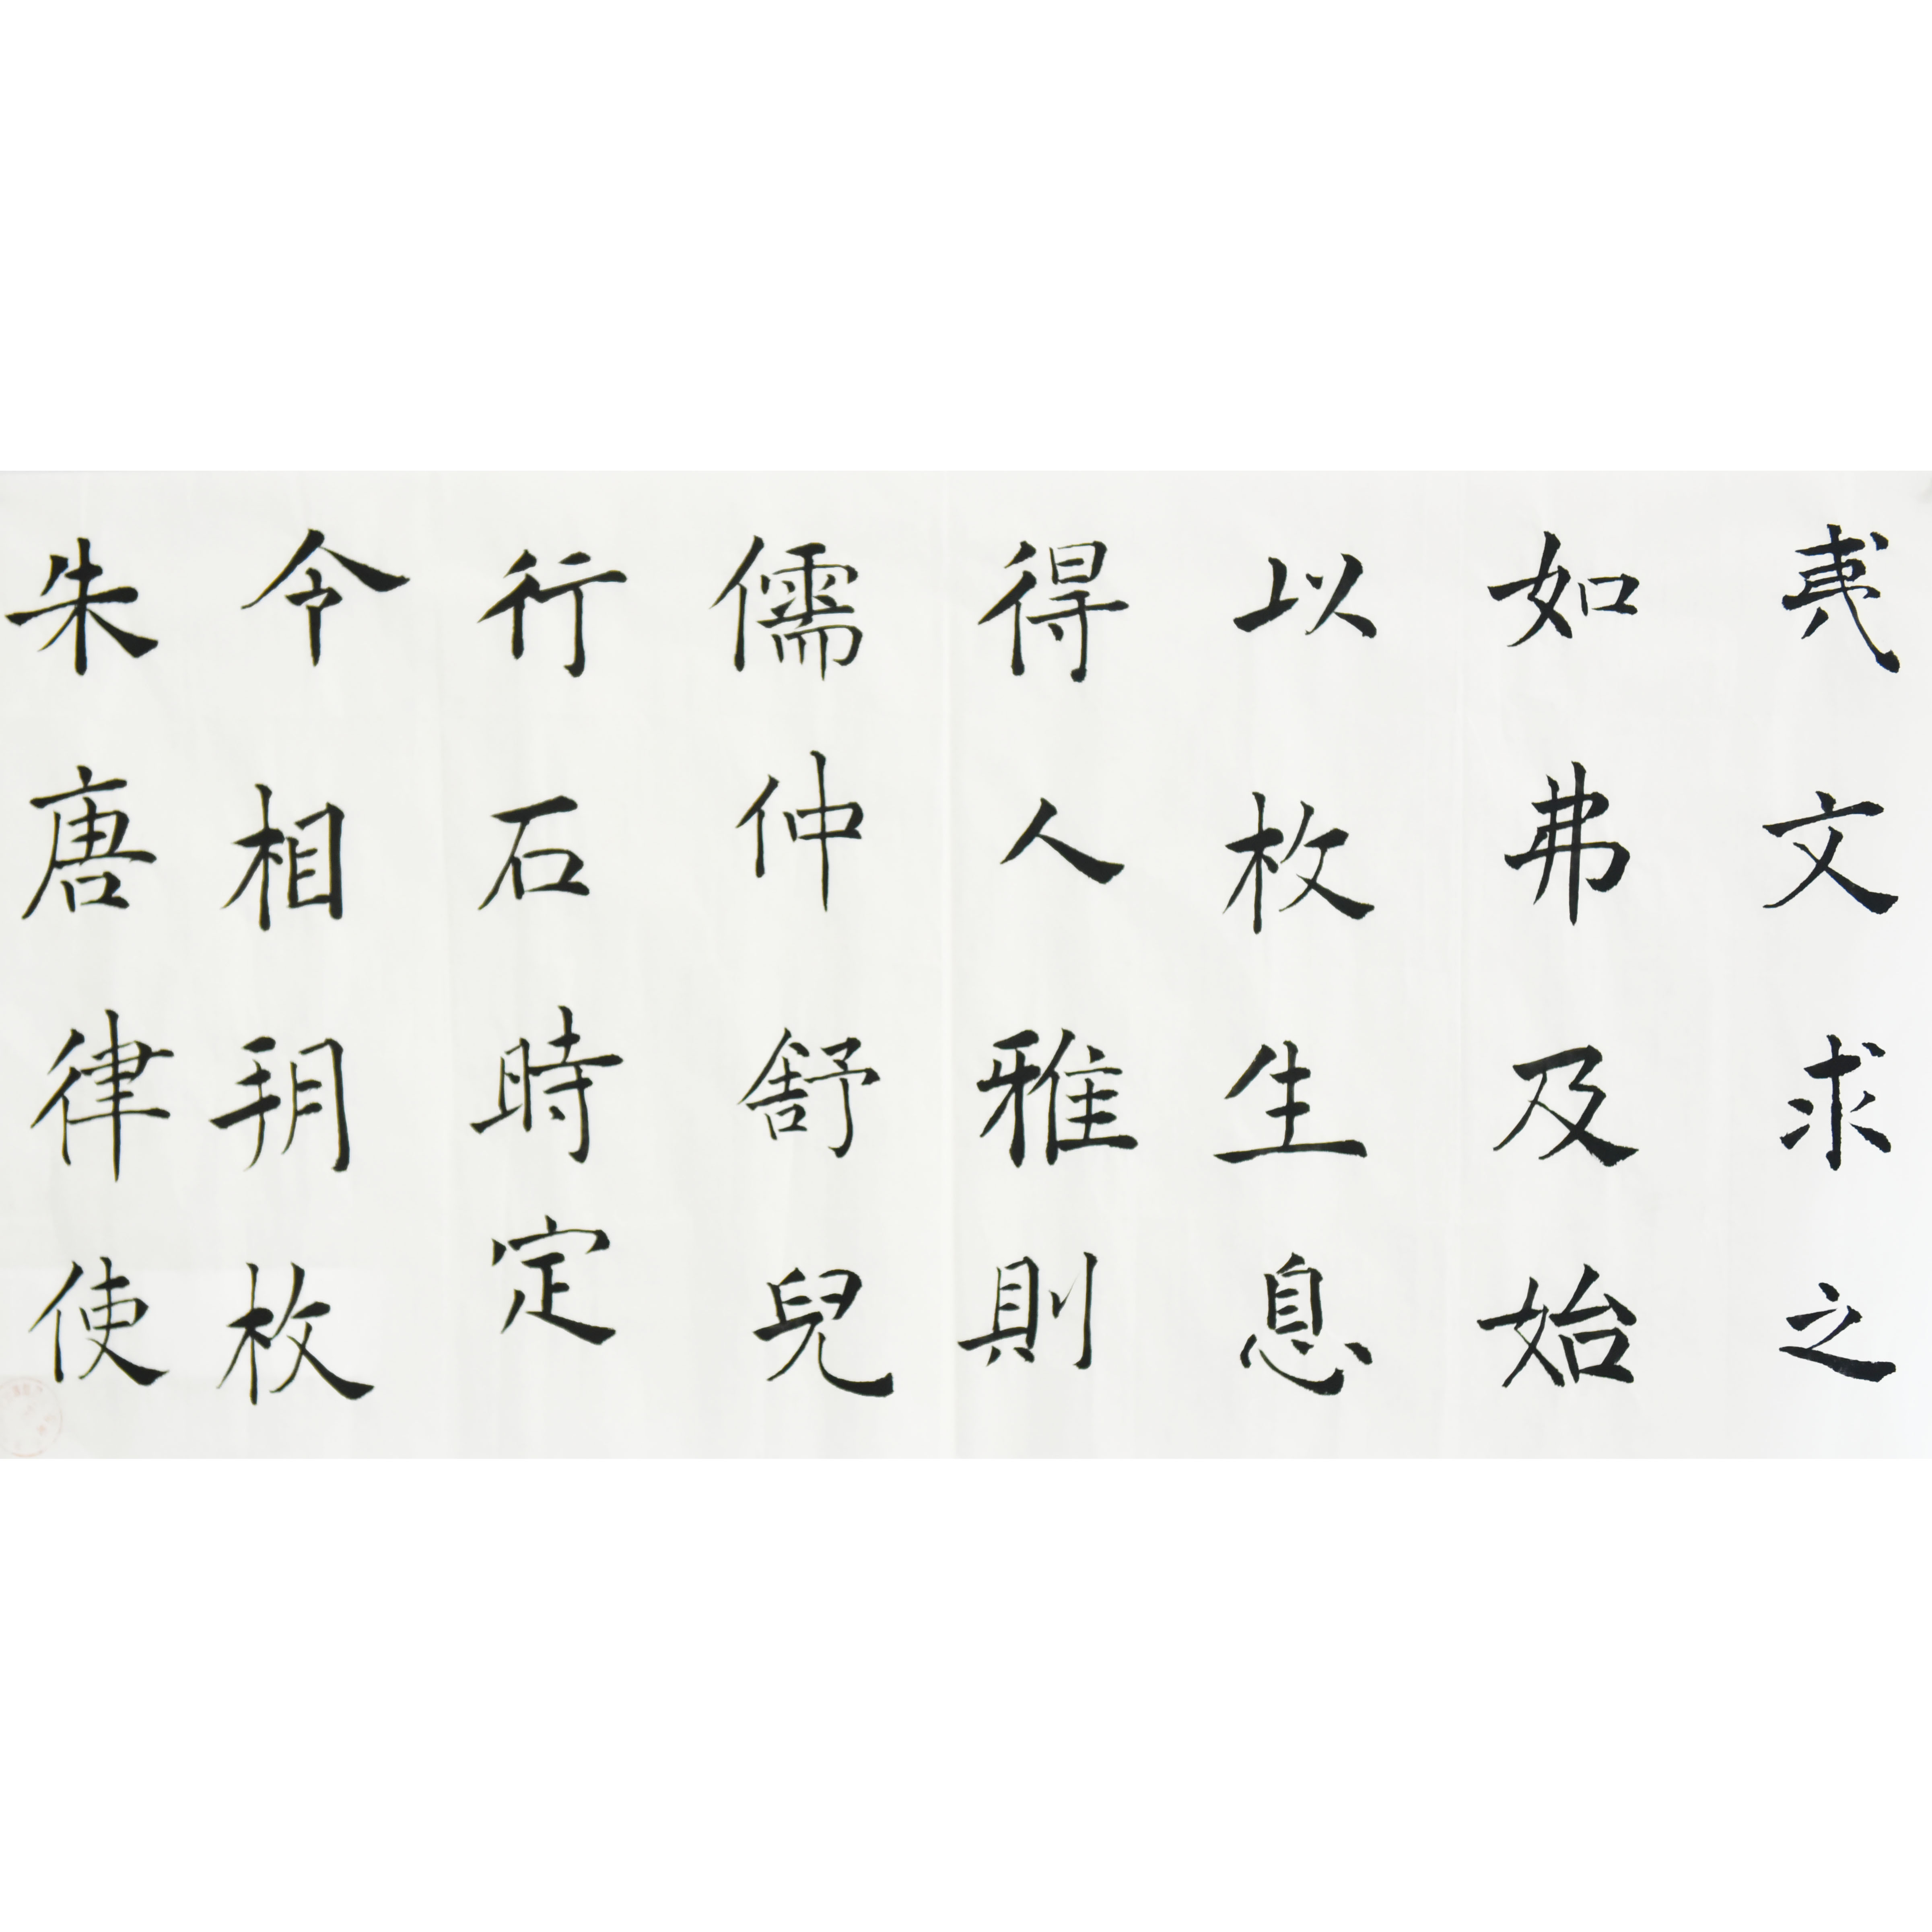 夷文求之
如弗及始
以枚生息
得人雅則
儒仲舒兒
行石時定
令相朋枚
朱唐律使